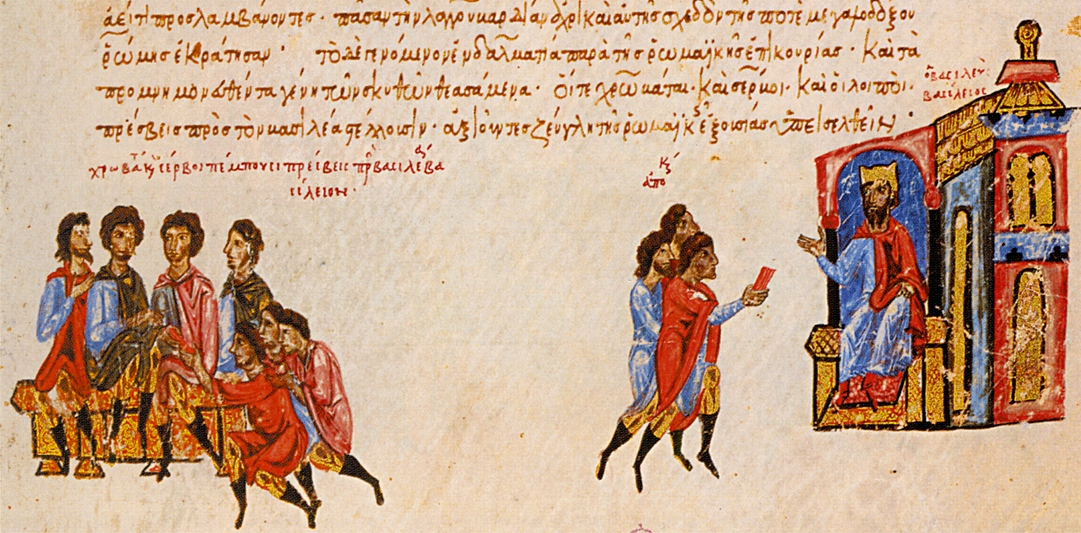 ἀεί τι προσλαμβάνοντες · πᾶσαν τὴν λογουκαρδίαν ἄχρι καὶ αὐτῆς σχεδὸν τῆς ποτὲ μεγαλοδόξου
ῥώμης ἐκράτησαν · τὸ δὲ γενόμενον ἐν δαλματία παρὰ τῆς ῥωμαϊκῆς ἐπικουρίας · καὶ τὰ
προμνημονευθέντα γένη τῶν σκυθῶν θεασάμενα · οἵ τε χρωβάται · καὶ σέρβοι · καὶ οἱ λοιποὶ ·
πρέσβεις πρὸς τὸν βασιλέα στέλλουσιν · ἀξιοῦντες ζεύγλη τῆς ῥωμαϊκῆς ἐξουσίας ὑπεισελθεῖν ·
ὁ βασιλεὺς
βασίλειος
χρωβάτ κ σέρβοι πέμπουσι πρέσβεις πρ βασιλέα βα
σίλειον ·